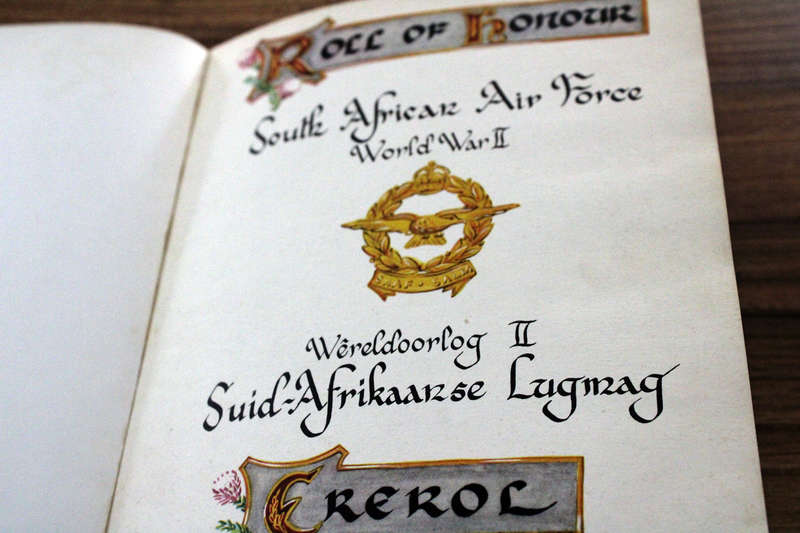 ROLL OF HONOUR
South African Air Force
World War II
SAAF · SALM
Wêreldoorlog II
Suid-Afrikaanse Lugmag
EREROL